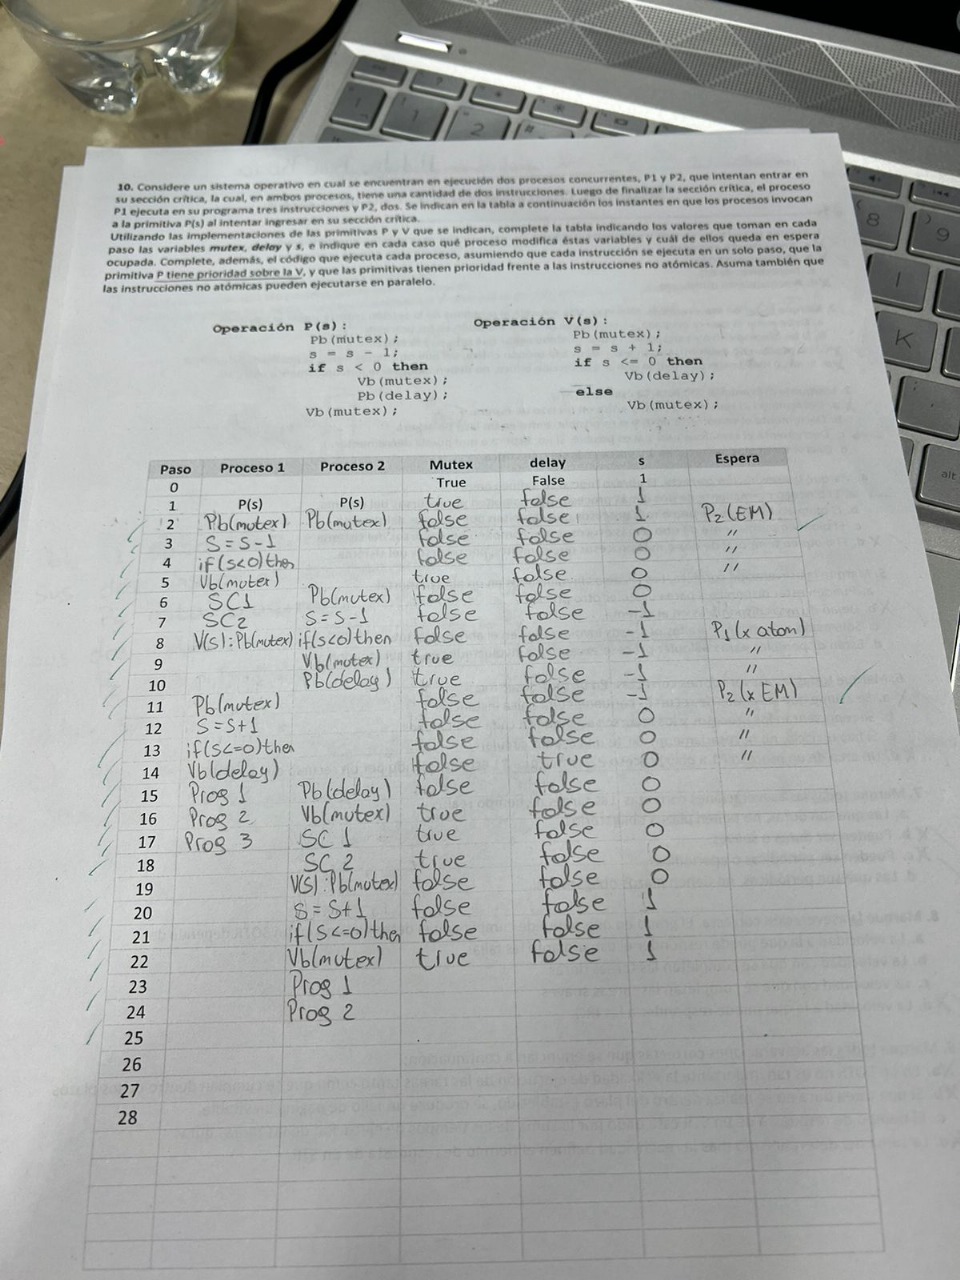 10. Considere un sistema operativo en cual se encuentran en ejecución dos procesos concurrentes, P1 y P2, que intentan entrar en
su sección crítica, la cual, en ambos procesos, tiene una cantidad de dos instrucciones. Luego de finalizar la sección crítica, el proceso
P1 ejecuta en su programa tres instrucciones y P2, dos. Se indican en la tabla a continuación los instantes en que los procesos invocan
a la primitiva P(s) al intentar ingresar en su sección crítica.
Utilizando las implementaciones de las primitivas P y V que se indican, complete la tabla indicando los valores que toman en cada
paso las variables mutex, delay y s, e indique en cada caso qué proceso modifica éstas variables y cuál de ellos queda en espera
ocupada. Complete, además, el código que ejecuta cada proceso, asumiendo que cada instrucción se ejecuta en un solo paso, que la
primitiva P tiene prioridad sobre la V, y que las primitivas tienen prioridad frente a las instrucciones no atómicas. Asuma también que
las instrucciones no atómicas pueden ejecutarse en paralelo.
Operación P(s): Operación V(s):
Pb(mutex); Pb(mutex);
s = s - 1; s = s + 1;
if s < 0 then if s <= 0 then
Vb(mutex); Vb(delay);
Pb(delay); else
Vb(mutex); Vb(mutex);
Paso Proceso 1 Proceso 2 Mutex delay s Espera
0 True False 1
1 P(s) P(s) true false 1
2 Pb(mutex) Pb(mutex) false false 1 P2(EM)
3 S=S-1 false false 0 "
4 if(s<0)then false false 0 "
5 Vb(mutex) true false 0 "
6 SC1 Pb(mutex) false false 0
7 SC2 S=S-1 false false -1
8 V(s):Pb(mutex) if(s<0)then false false -1 P1(x atom)
9 Vb(mutex) true false -1 "
10 Pb(delay) true false -1 "
11 Pb(mutex) false false -1 P2(x EM)
12 S=S+1 false false 0 "
13 if(S<=0)then false false 0 "
14 Vb(delay) false true 0 "
15 Prog 1 Pb(delay) false false 0
16 Prog 2 Vb(mutex) true false 0
17 Prog 3 SC 1 true false 0
18 SC 2 true false 0
19 V(s):Pb(mutex) false false 0
20 S=S+1 false false 1
21 if(S<=0)then false false 1
22 Vb(mutex) true false 1
23 Prog 1
24 Prog 2
25
26
27
28
1
2
#
8
9
K
alt